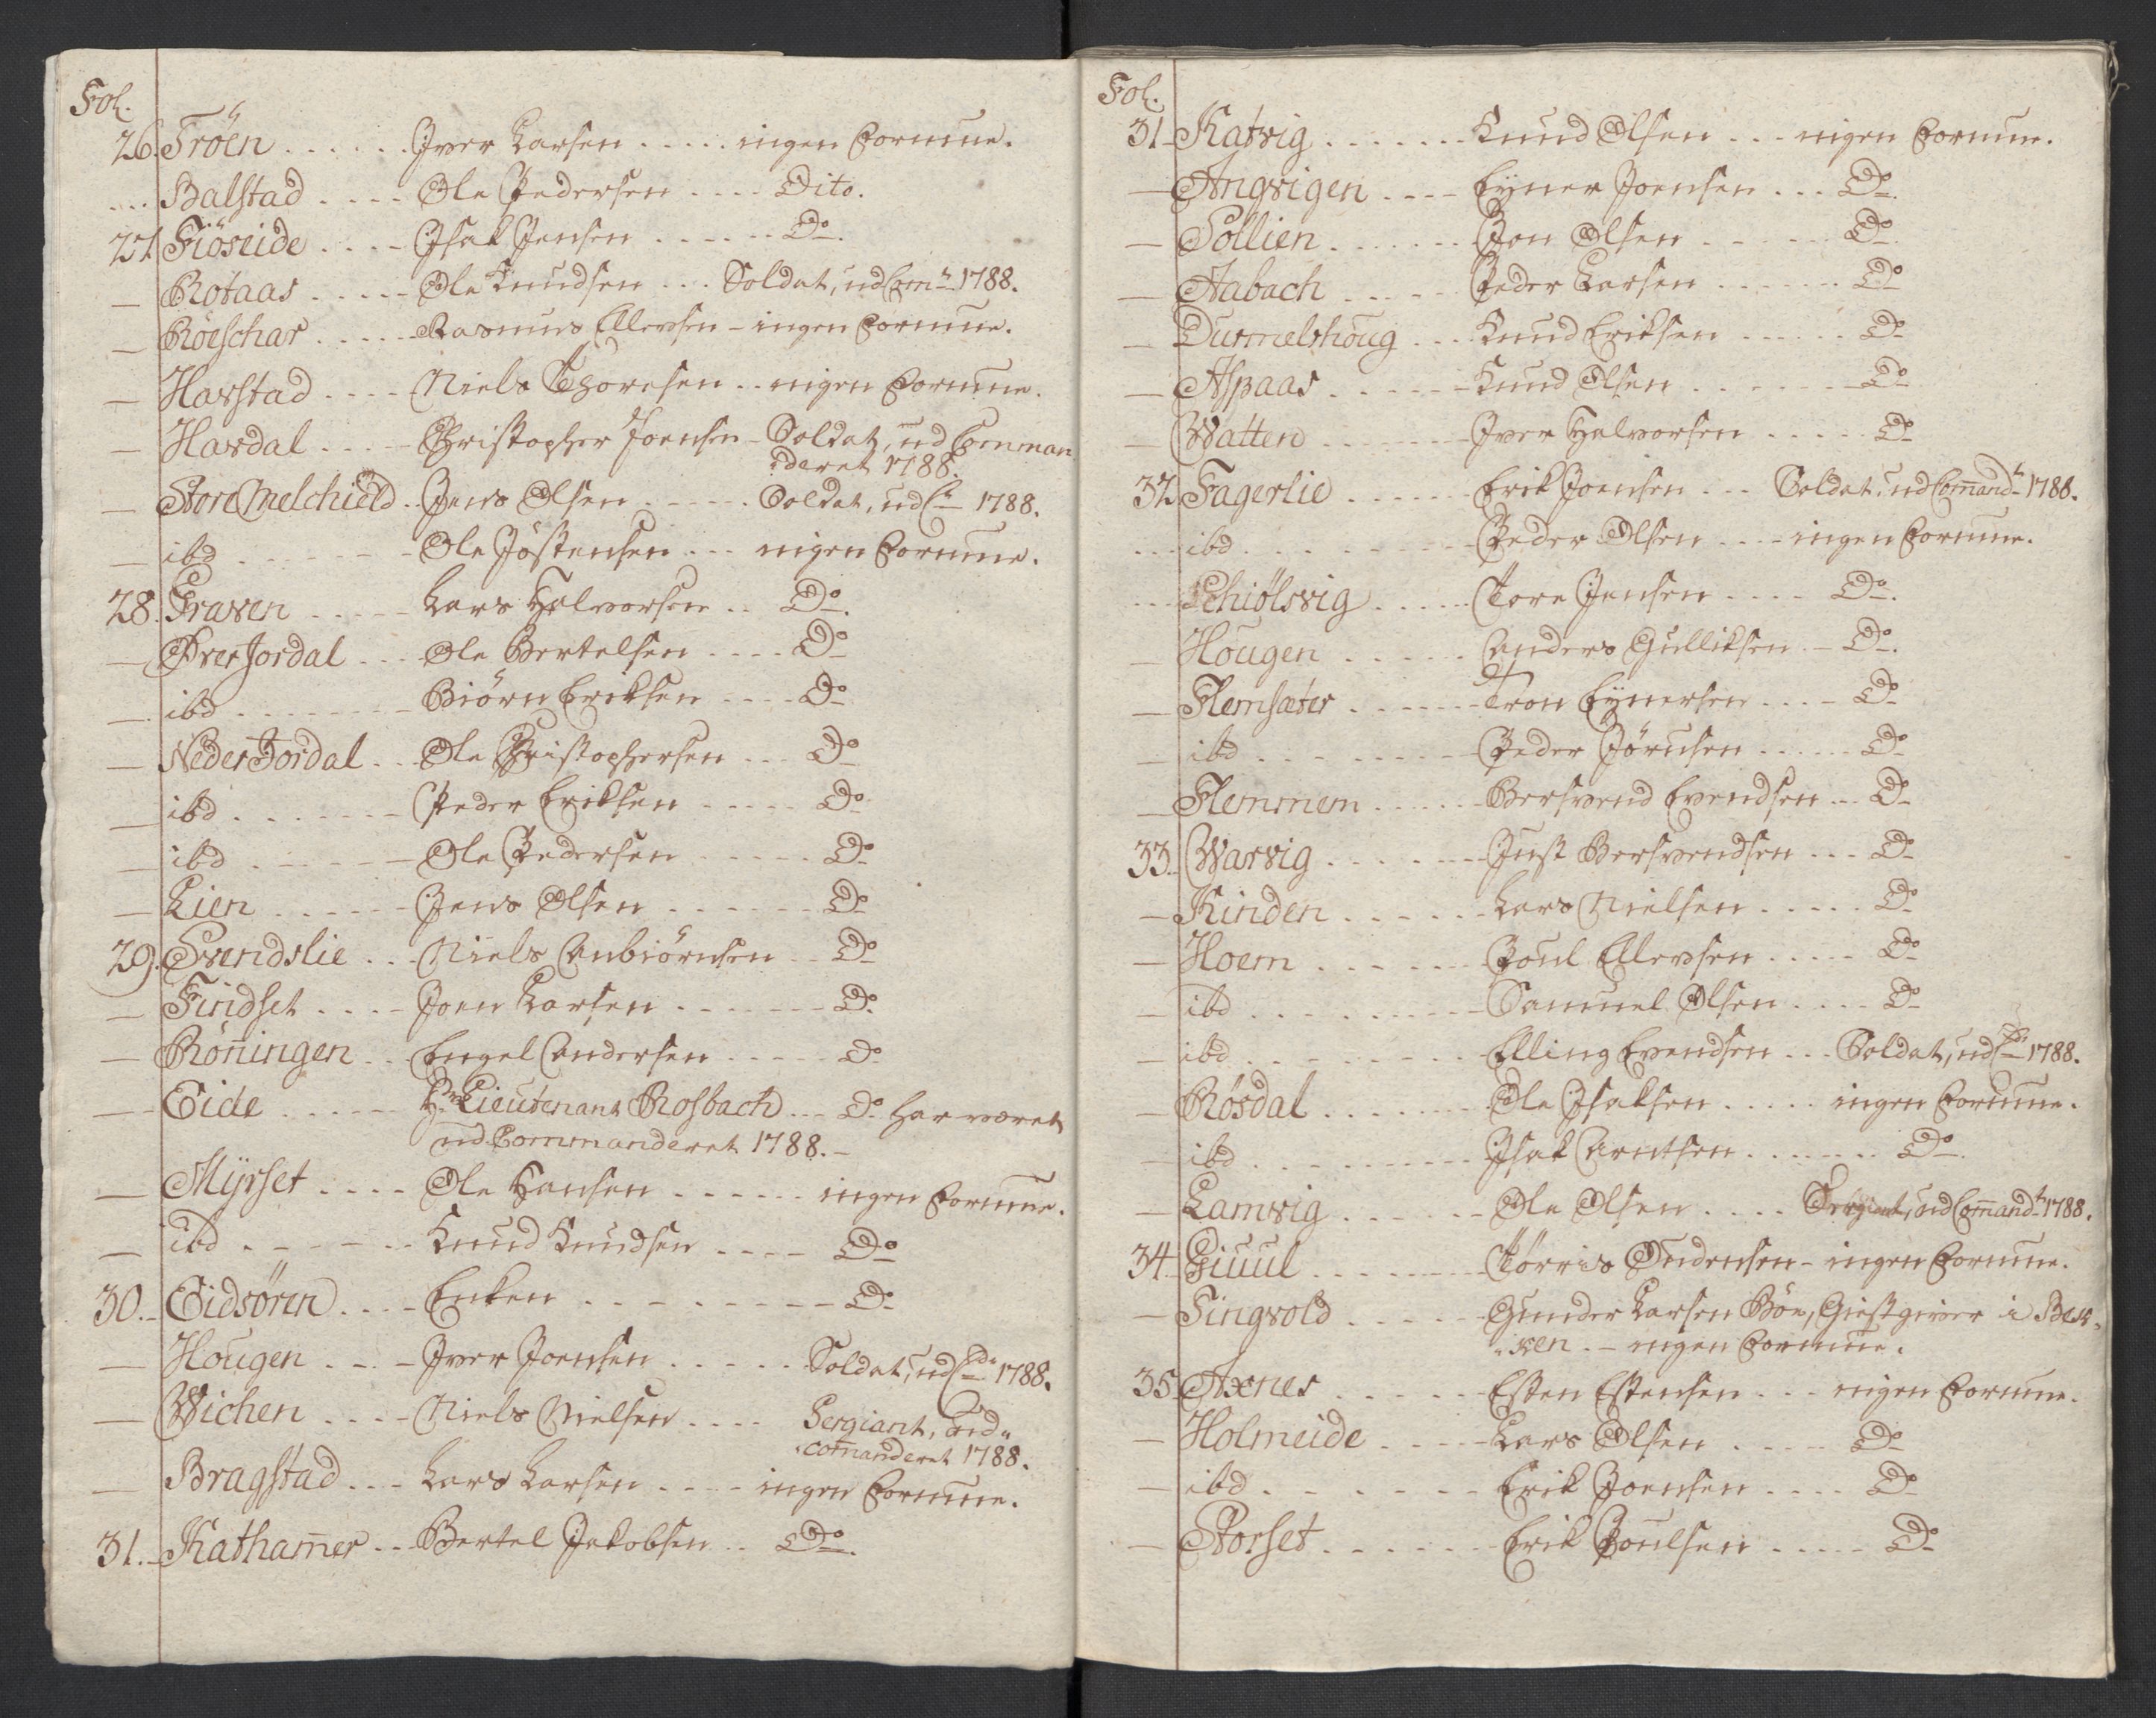 Fol.
26. Tröen . . . . . . Jver Larsen . . . . . ingen Formue.
. . . Balstad . . . . Ole Pedersen . . . . Dito.
27. Fiöseide . . . . Jsak Jensen . . . . . . Do.
— Rotaas . . . . . Ole Knudsen . . . Soldat, ud Comt 1788.
— Röeschar . . . . . Rasmus Ellevsen – ingen Formue.
— Harstad . . . . Niels Thoresen . . ingen Formue.
— Hardal . . . . Christopher Joensen – Soldat, ud Comman
deret 1788.
— Store Melchield . . Jens Olsen . . . . . Soldat, ud Ct 1788.
— ibd . . . . . . Ole Jöstensen . . . ingen Formue.
28. Graven . . . . . Lars Halvorsen . . Do.
— Över Jordal . . . Ole Bertelsen . . . . Do
— ibd . . . . . . . Biörn Eriksen . . . . Do
— Neder Jordal . . Ole Christophersen . . . Do
— ibd . . . . . . . Peder Eriksen . . . . . Do
— ibd . . . . . . Ole Pedersen . . . . . Do
— Lien . . . . . . Jens Olsen . . . . . . Do
29. Svendslie . . . Niels Anbiörnsen . . Do
— Findset . . . . Joen Larsen . . . . . . . Do
— Rön̄ingen . . Engel Andersen . . . . . Do
— Eide . . . . . . Hr Lieutenant Rosbach . . . Do har været
ud Commanderet 1788. –
— Mÿrset . . . . Ole Hansen . . . . . . ingen Formue.
— ibd . . . . . . Knud Knudsen . . . . Do
30. – Eidsören . . . . Enken . . . . . . . . . Do
— Hougen . . . . Jver Joensen . . . . . Soldat, ud Cdt 1788.
— Wichen . . . . Niels Nielsen . . . . Sergiant, ud
com̄anderet 1788.
— Bragstad . . . Lars Larsen . . . . ingen Formue.
31. – Katham̄er . . Bertel Jakobsen . . Do.
Fol.
31 – Katvig . . . . . . . Knud Olsen . . . ingen Formue.
— Angvigen . . . . Eÿner Joensen . . . Do.
— Sollien . . . . . . . Jon Olsen . . . . . . Do
— Aabach . . . . . Peder Larsen . . . . . . Do
— Durmelshoug . . . Knud Eriksen . . . . . . Do
— Aspaas . . . . . . Knud Olsen . . . . . . . Do
— Watten . . . . . . . Jver Halvorsen . . . . . Do
32. Fagerlie . . . . . . Erik Joensen . . . Soldat, ud Com̄andt 1788.
. . . ibd . . . . . . . . . Peder Olsen . . . . ingen Formue.
. . . Schiölsvig . . . . . Tore Jensen . . . . Do.
— Hougen . . . . . Anders Gulliksen . – Do.
— Flemsæter . . . . . . . Tron Eÿnersen . . . . Do
— ibd . . . . . . . . . Peder Jörnsen . . . . . Do
— Flemmem . . . . . . Bersvend Evendsen . . . Do
33. – Warvig . . . . . . . Just Bersvendsen . . . Do
— Kinden . . . . . . Lars Nielsen . . . . . Do
— Hoem . . . . . . . Poul Ellevsen . . . . . Do
— ibd . . . . . . . . . Samuel Olsen . . . . Do
— ibd . . . . . . . . . Elling Evendsen . . . Soldat, ud Cdt 1788.
— Rösdal . . . . . . . Ole Jsaksen . . . . . ingen Formue.
— ibd . . . . . . . . . Jsak Arntsen . . . . . . Do.
— Lamvig . . . . . . Ole Olsen . . . . Sergiant, ud Com̄andt 1788.
34. – Giuul . . . . . . . . Törris Oudensen – ingen Formue.
— Tingvold . . . . . Gunder Larsen Böe, Giestgiver i Bek
ken. – ingen Formue.
35. Axnes . . . . . . Esten Estensen . . . ingen Formue.
— Holmeide . . . . . Lars Olsen . . . . . Do
— ibd . . . . . . . Erik Joensen . . . . Do
— Storset . . . . . . Erik Poulsen . . . . . Do